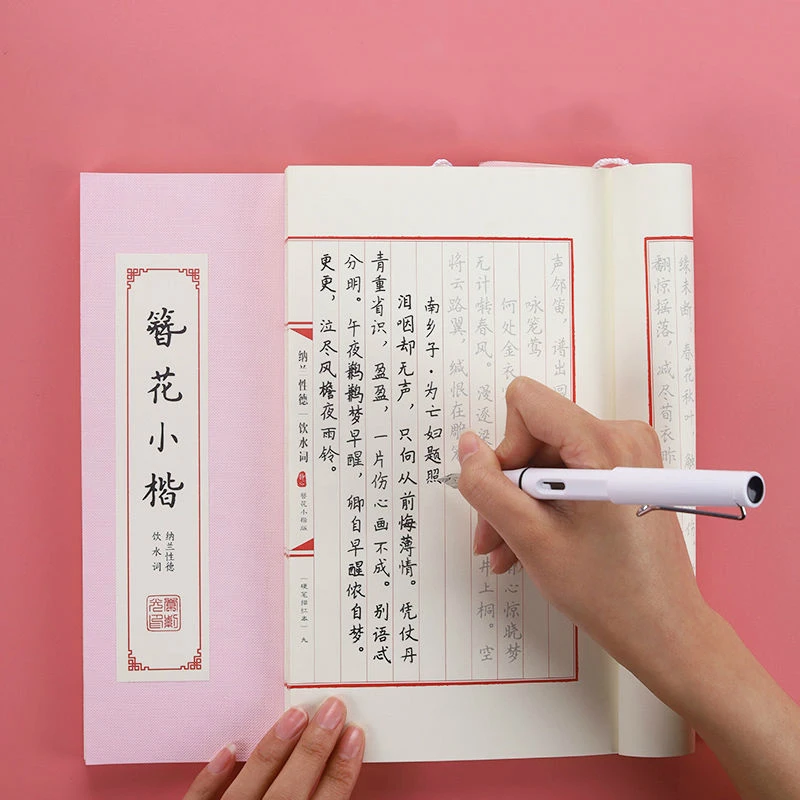 缘未断，春花秋叶，触
翻惊摇落，减尽荀衣昨
声邻笛，谱出回
咏笼莺
何处金衣 心惊晓梦
无计啭春风。漫逐梁 井上桐。空
将云路翼，缄恨在雕
南乡子·为亡妇题照
泪咽却无声，只向从前悔薄情。凭仗丹
青重省识，盈盈，一片伤心画不成。别语忒
分明。午夜鹣鹣梦早醒，卿自早醒侬自梦。
更更，泣尽风檐夜雨铃。
纳兰性德｜饮水词 簪花小楷版 ｜硬笔描红本｜ 九
簪花小楷
纳兰性德
饮水词